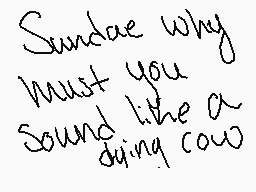 Sundae why
must you
sound like a
dying cow